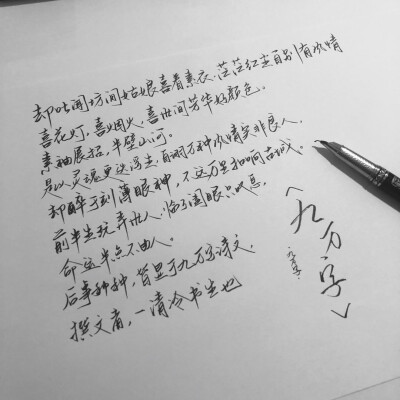 却听闻坊间姑娘喜着素衣，茫茫红尘自别有浓情
喜花灯，喜烟火，喜世间芳华好颜色。
素袖展招，半壁山河。
是以灵魂更迭浮生，自诩万种风情实非良人，
却醉于刻薄眼神，不远万里扣响古城。
前半生玩弄世人，临了阖眼只叹息，
命运半点不由人。
后事种种，皆于九万字诗文，
撰文者，一清冷书生也
〈九万字〉